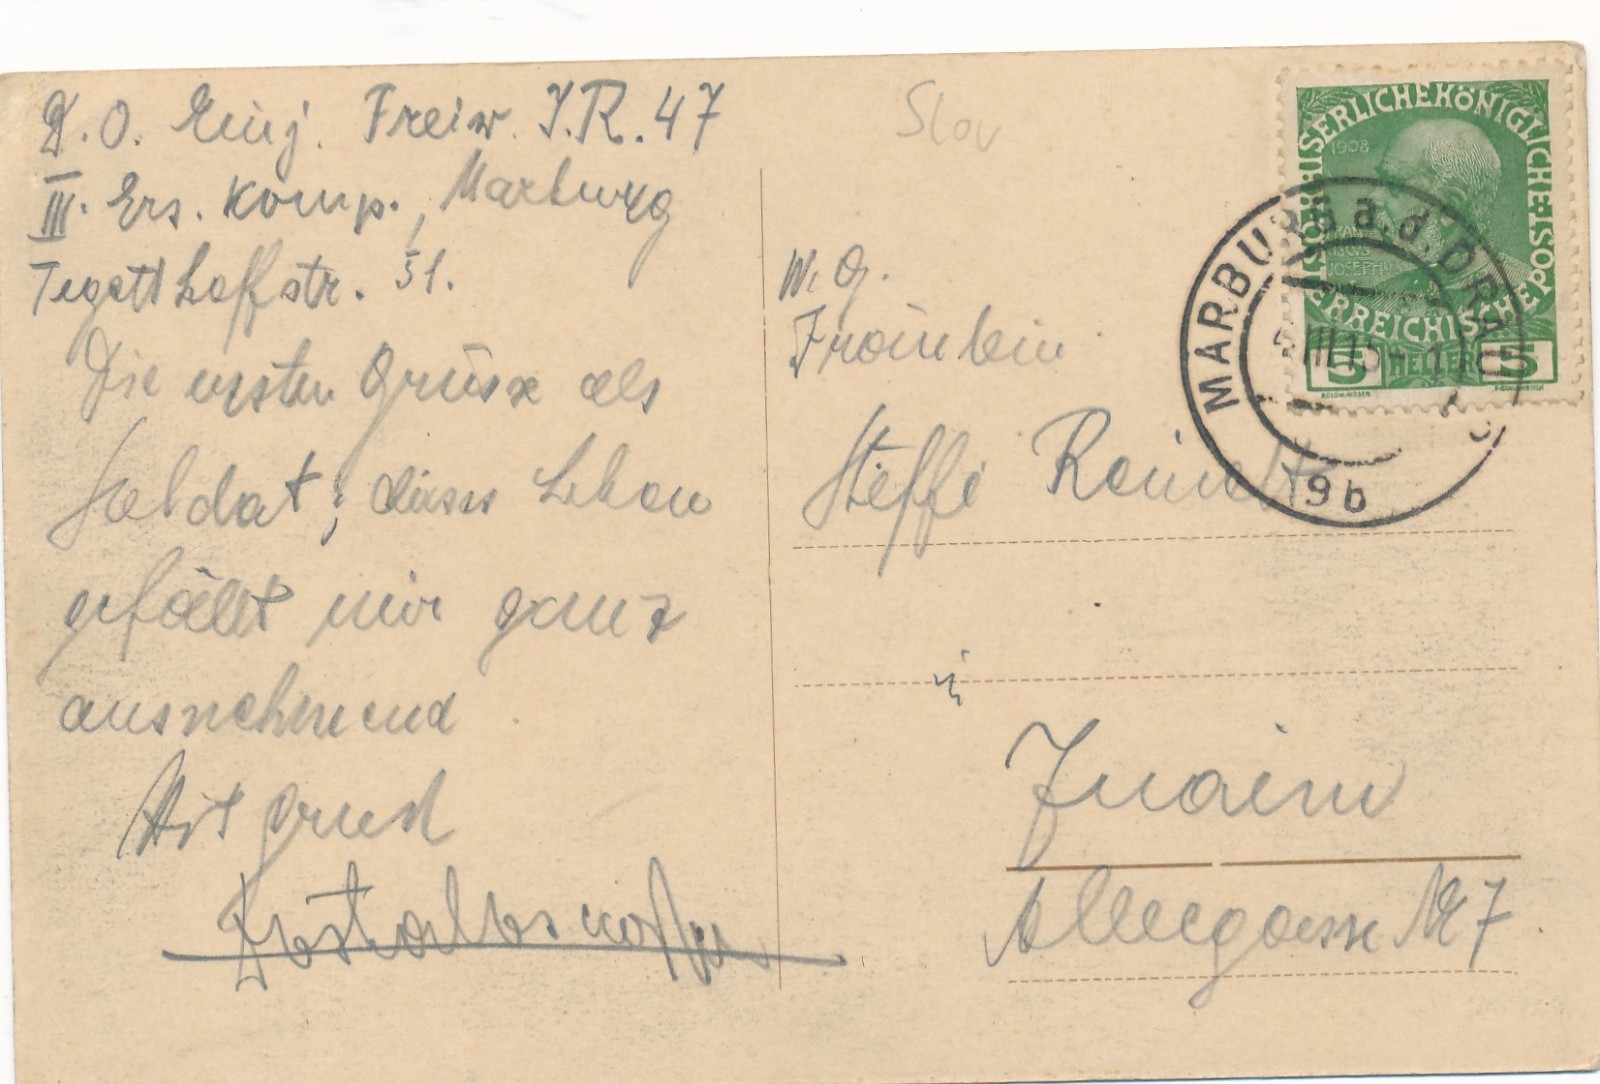 D.O. Einj. Freiw. I.R. 47
III. Ers. Komp., Marburg
Tegetthoffstr. 51.
Die ersten Grüsse als
Soldat; dieses Leben
gefällt mir ganz
ausnehmend
Mit Gruß
Slov
W.G.
Fräulein
Steffi
in
Znaim
Alleegasse № 7
KAISERLICHEKÖNIGLICHE
ÖSTERREICHISCHE POST
1908
JOSEPH
5 HELLER 5
MARBURG a.d. DRAU
III 15
9b